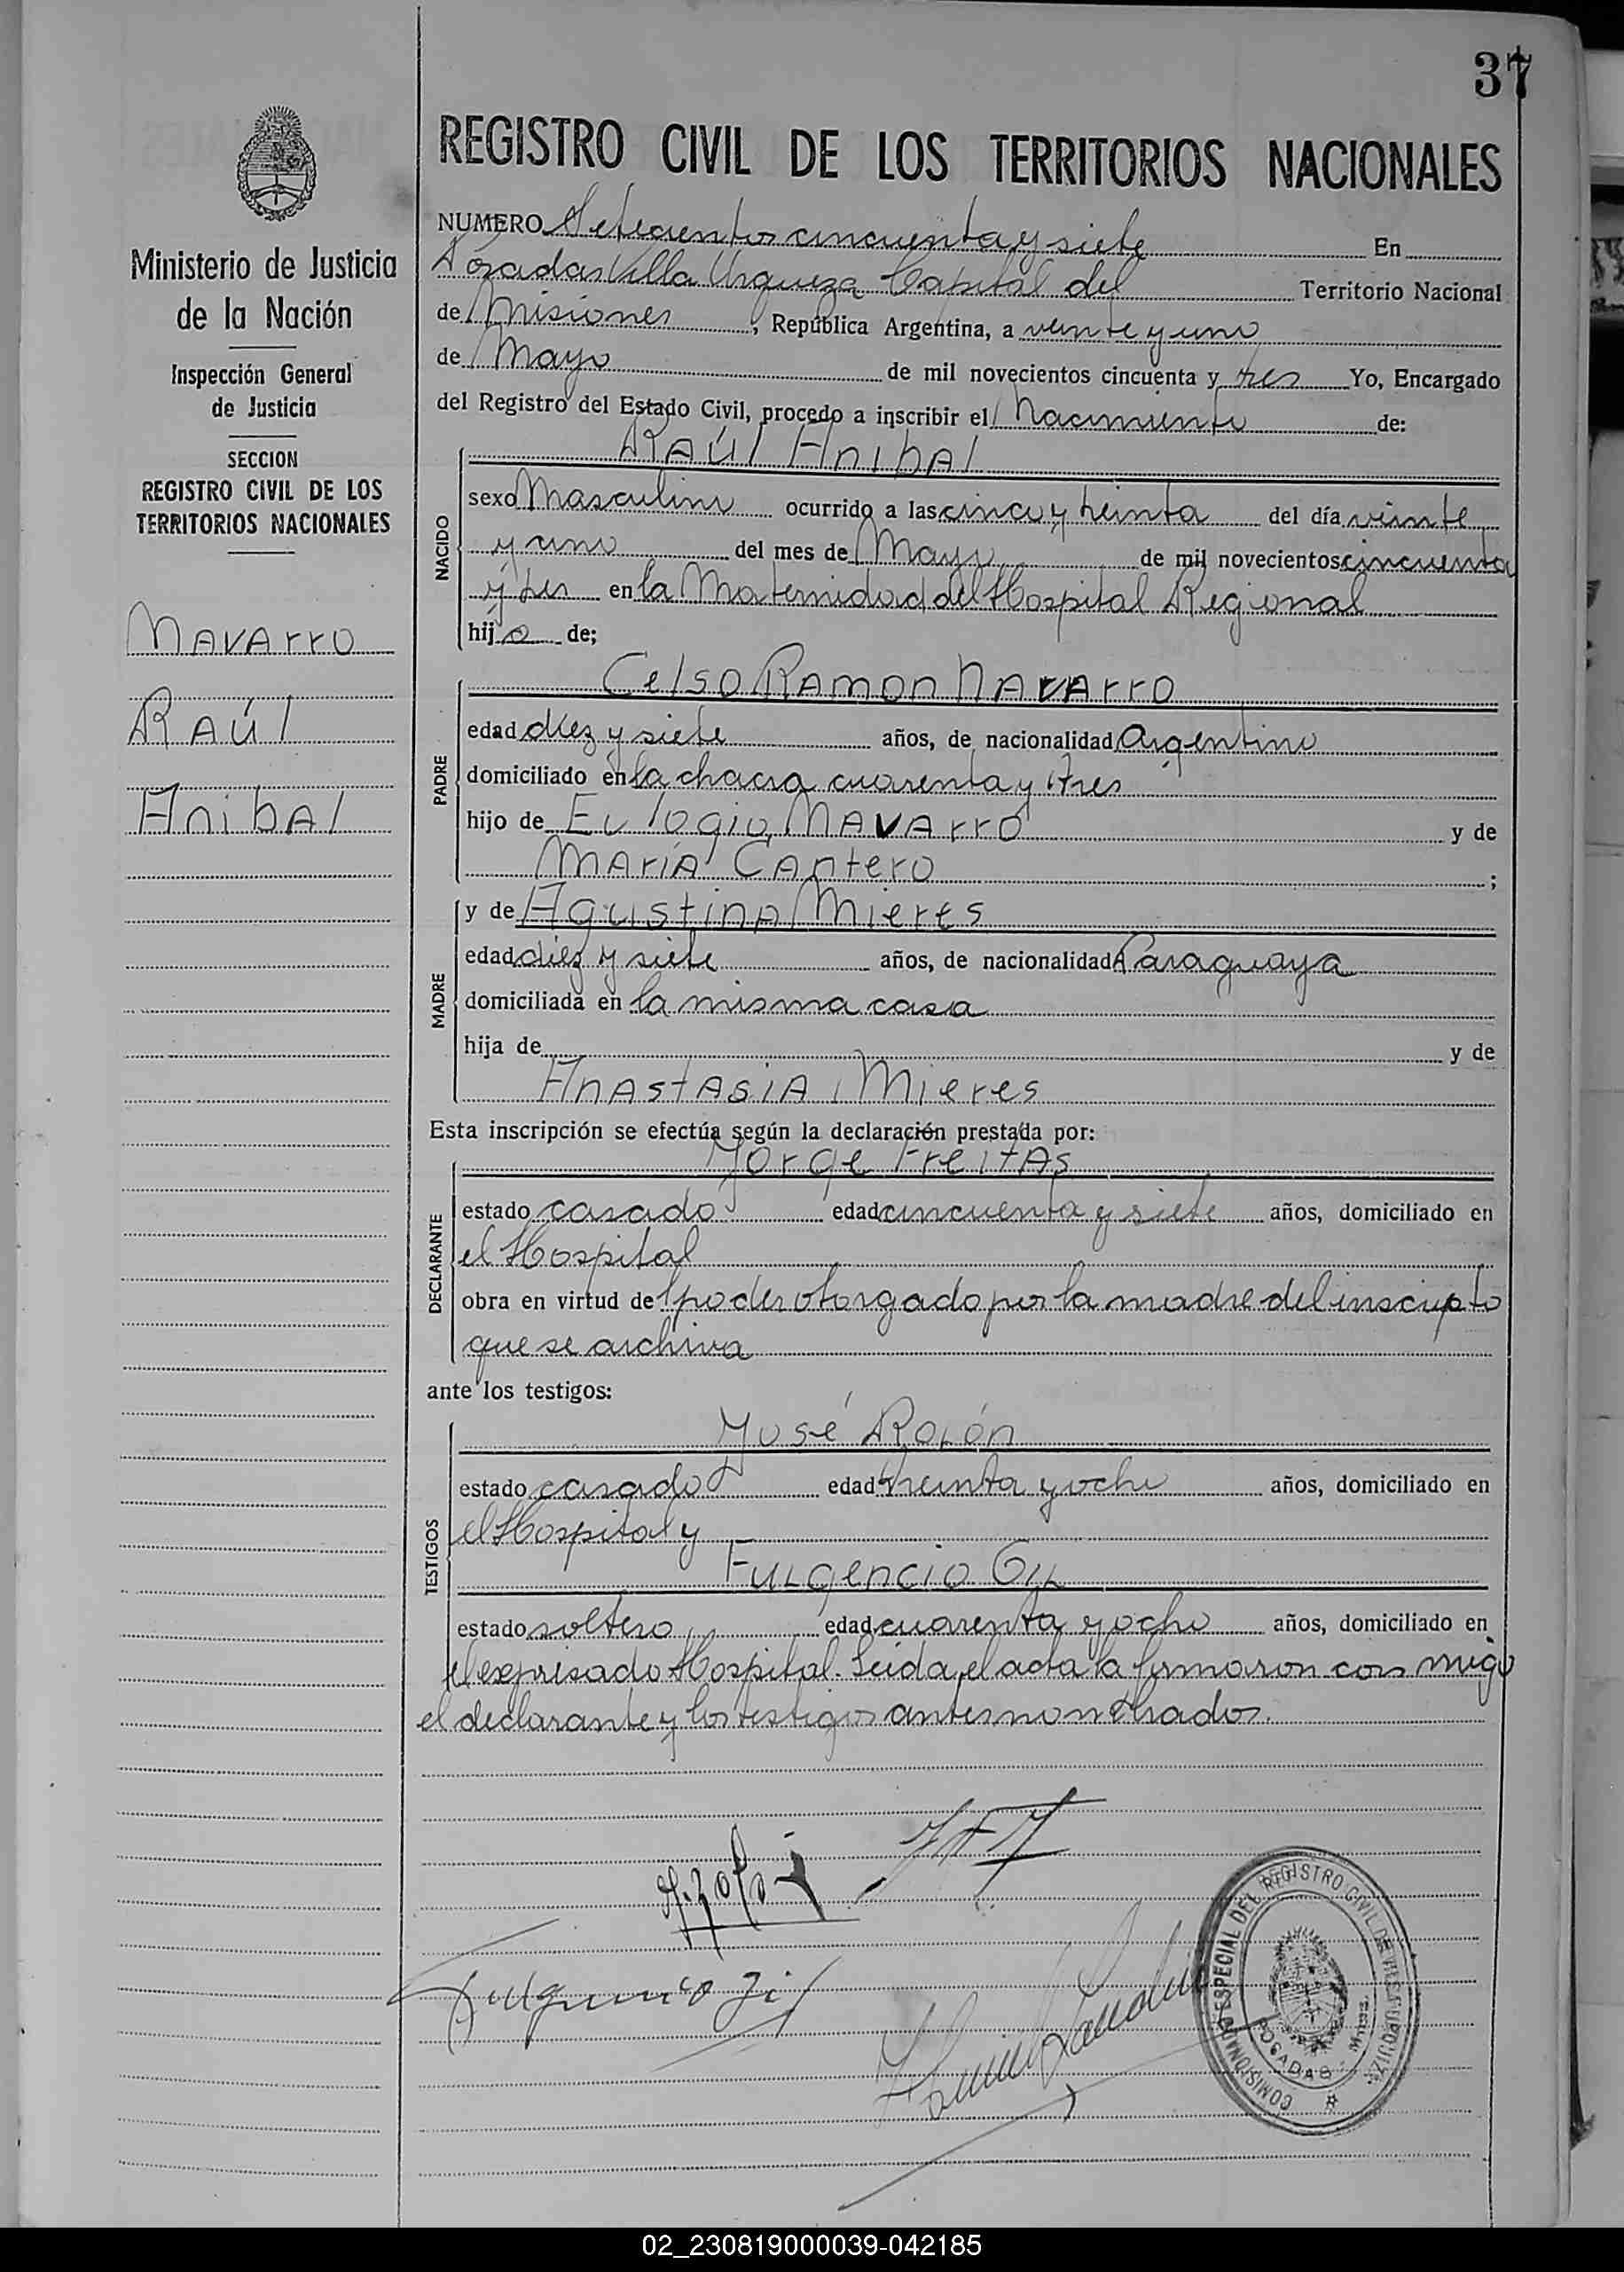 37
REGISTRO CIVIL DE LOS TERRITORIOS NACIONALES
Ministerio de Justicia
de la Nación
Inspección General
de Justicia
SECCION
REGISTRO CIVIL DE LOS
TERRITORIOS NACIONALES
Navarro
Raúl
Anibal
NUMERO Setecientos cincuenta y siete En
Posadas Villa Urquiza Capital del Territorio Nacional
de Misiones, República Argentina, a veinte y uno
de Mayo de mil novecientos cincuenta y tres Yo, Encargado
del Registro del Estado Civil, procedo a inscribir el Nacimiento de:
Raúl Anibal
NACIDO
sexo Masculino ocurrido a las cinco y treinta del día veinte
y uno del mes de Mayo de mil novecientos cincuenta
y tres en la Maternidad del Hospital Regional
hijo de;
Celso Ramon Navarro
PADRE
edad diez y siete años, de nacionalidad Argentino
domiciliado en la chacra cuarenta y tres
hijo de Eulogio Navarro y de
María Cantero ;
MADRE
y de Agustina Mieres
edad diez y siete años, de nacionalidad Paraguaya
domiciliada en la misma casa
hija de y de
Anastasia Mieres
Esta inscripción se efectúa según la declaración prestada por:
Jorge Freitas
DECLARANTE
estado casado edad cincuenta y siete años, domiciliado en
el Hospital
obra en virtud del poder otorgado por la madre del inscripto
que se archiva
ante los testigos:
TESTIGOS
José Rolón
estado casado edad treinta y ocho años, domiciliado en
el Hospital y
Fulgencio Gil
estado soltero edad cuarenta y ocho años, domiciliado en
el expresado Hospital. Leida el acta la firmaron con migo
el declarante y los testigos antes nombrados.
Fulgencio Gil
COMISIONADO ESPECIAL DEL REGISTRO CIVIL DE VILLA URQUIZA
POSADAS - Mnes.
02_230819000039-042185